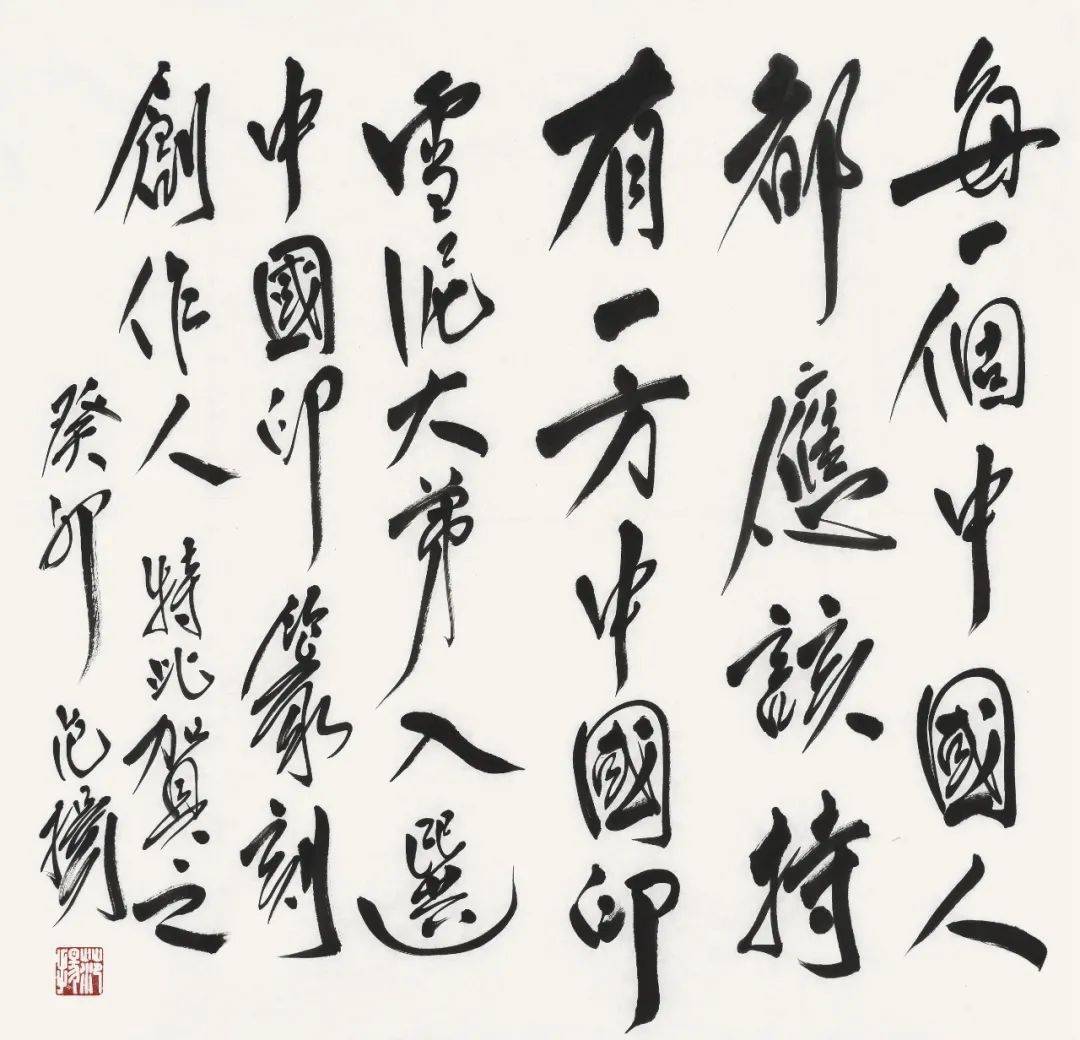 每一個中國人
都應該持
有一方中國印
雪泥大弟入選
中國印篆刻
創作人 特此賀之
癸卯 范揚
范揚